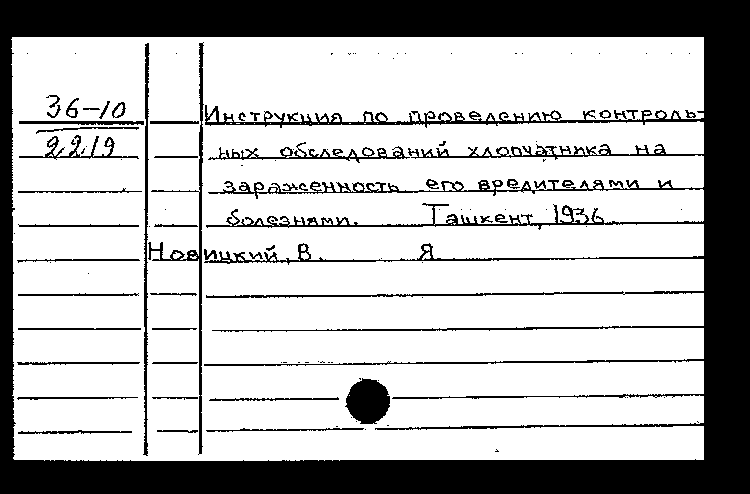 36-10
2219
Инструкция по проведению контроль-
ных обследований хлопчатника на
зараженность его вредителями и
болезнями. Ташкент, 1936
Новицкий, В. Я